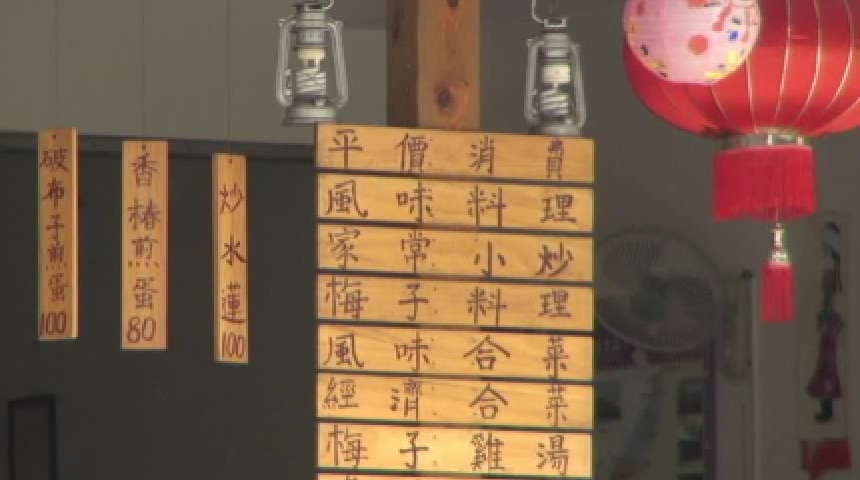 破布子煎蛋100
香椿煎蛋80
炒水蓮100
平價消費
風味料理
家常小炒
梅子料理
風味合菜
經濟合菜
梅子雞湯